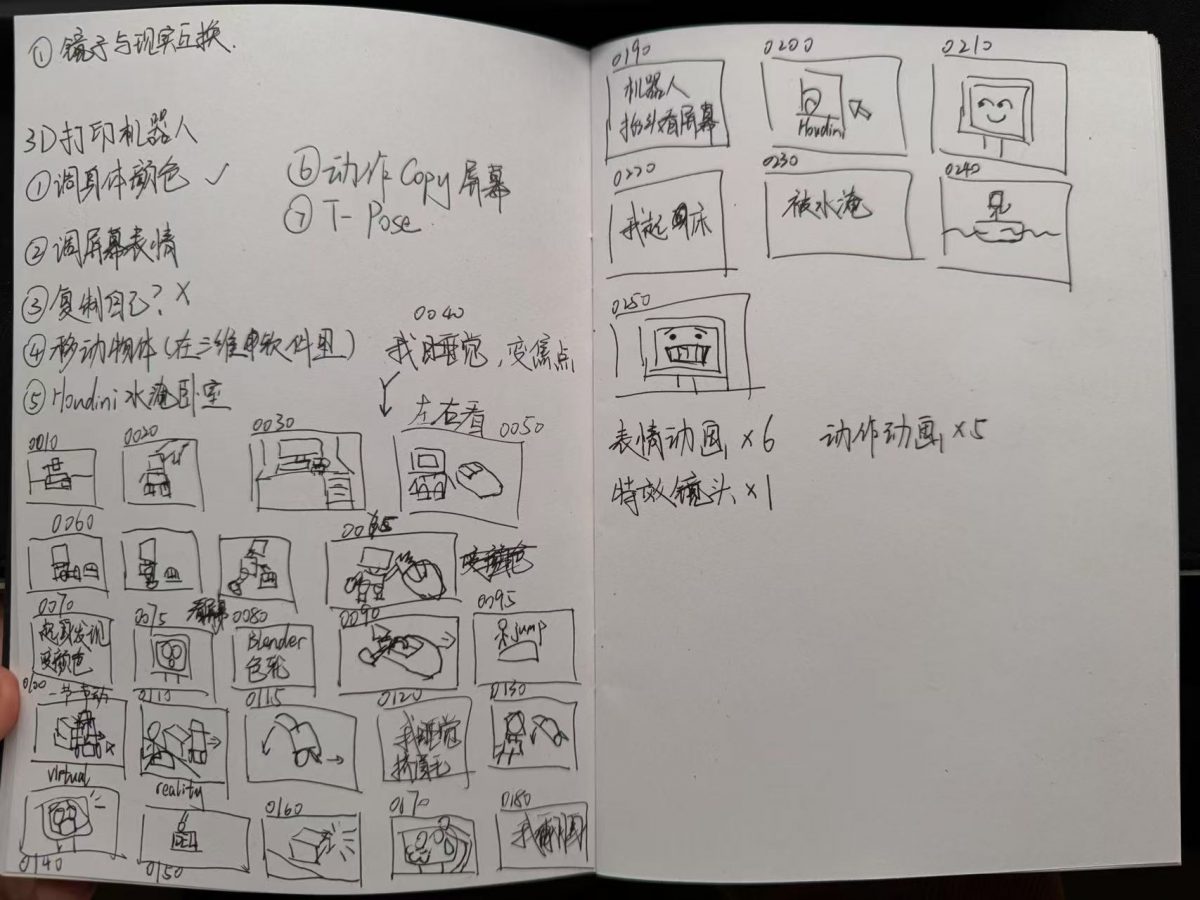 ① 镜子与现实互换.
3D打印机器人
① 调身体颜色 ✓
② 调屏幕表情
③ 复制自己? ×
④ 移动物体(在三维软件里)
⑤ Houdini 水淹卧室
⑥ 动作Copy屏幕
⑦ T-Pose
0040
我睡觉,变焦点
左右看
0010 0020 0030 0050
0060 0065
0070 0075 0080 0090 0095
起身发现
变颜色
Blender
色轮
jump
0100 0110 0115 0120 0130
virtual
reality
我睡觉
0140 0150 0160 0170 0180
0190 0200 0210
机器人
抬头看屏幕
Houdini
0220 0230 0240
我起床
被水淹
0250
表情动画 ×6 动作动画 ×5
特效镜头 ×1